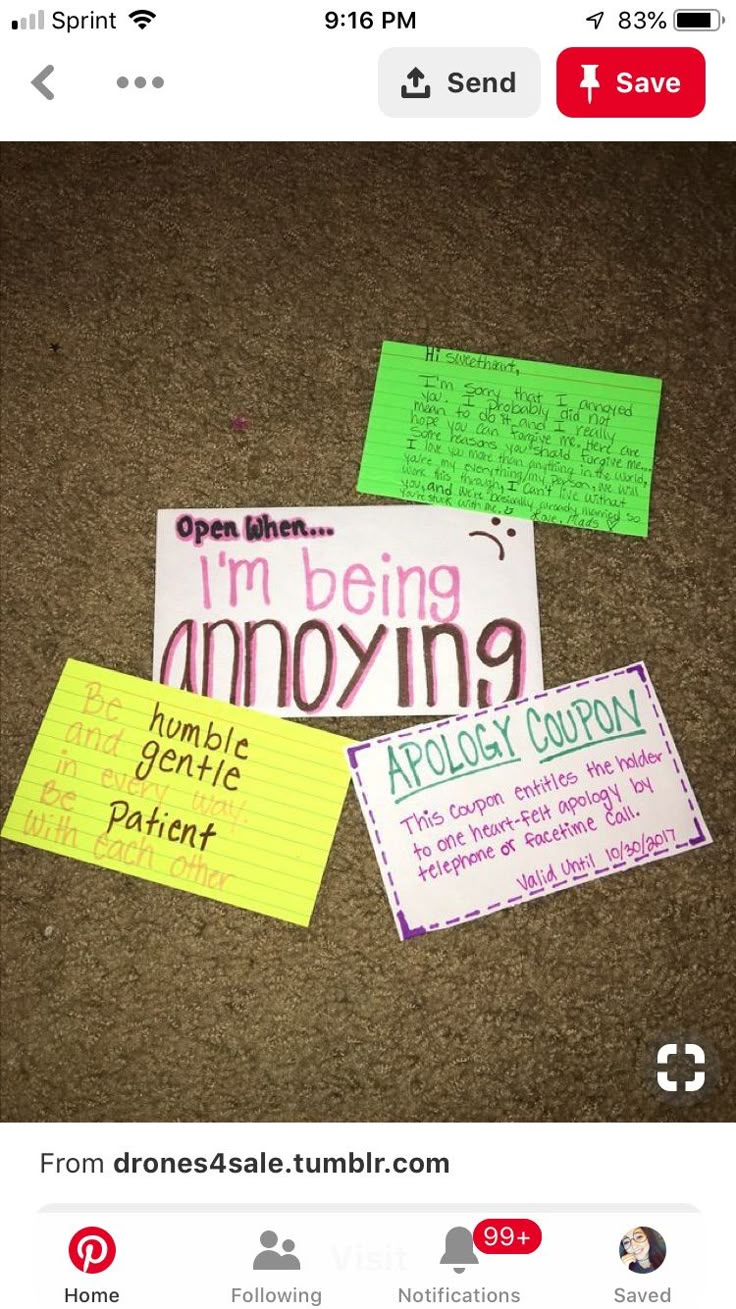 Sprint 9:16 PM 83%
Send Save
Hi sweetheart,
I'm sorry that I annoyed
you. I probably did not
mean to do it and I really
hope you can forgive me. Here are
some reasons you should forgive me...
I love you more than anything in the world,
you're my everything/my person, we will
work this through, I can't live without
you, and we're basically already married so
you're stuck with me. Love, Mads
Open When...
I'm being
annoying
Be humble
and gentle
in every way.
Be Patient
With each other
APOLOGY COUPON
This coupon entitles the holder
to one heart-felt apology by
telephone or facetime call.
Valid Until 10/30/2017
From drones4sale.tumblr.com
Visit
99+
Home Following Notifications Saved